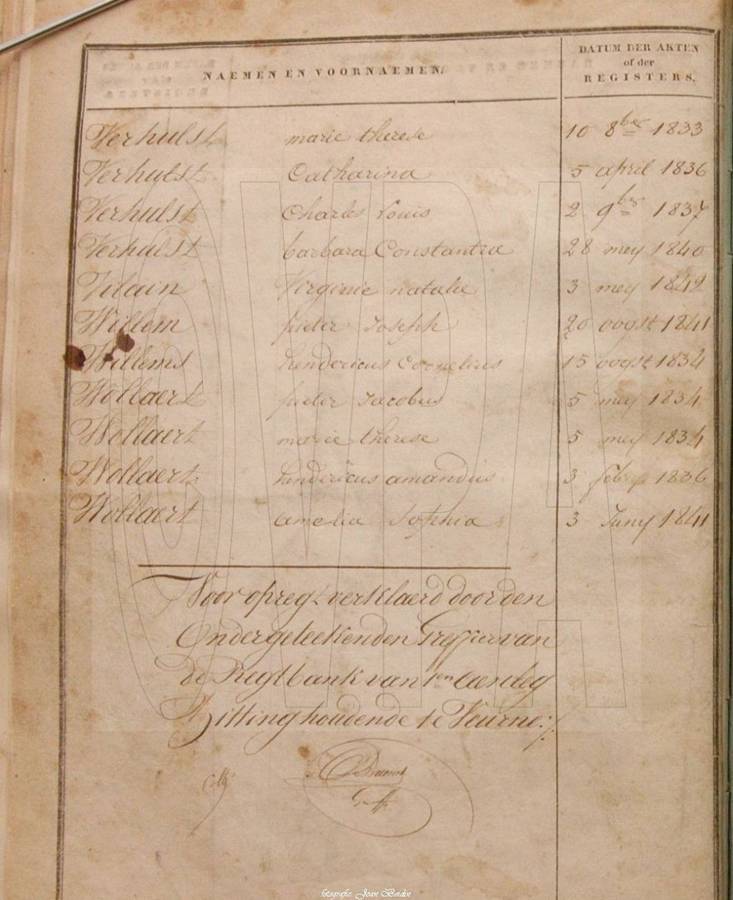 NAEMEN EN VOORNAEMEN.
DATUM DER AKTEN
of der
REGISTERS.
Verhulst marie therese 10 8ber 1833
Verhulst Catharina 5 april 1836
Verhulst Charles Louis 2 9br 1837
Verhulst barbara Constantia 28 mey 1840
Vilain Virginie natalie 3 mey 1842
Willem pieter Joseph 20 oogst 1841
Willems hendericus Cornelius 15 oogst 1834
Wollaert pieter Jacobus 5 mey 1834
Wollaert marie therese 5 mey 1834
Wollaert hendericus amandus 3 febry 1836
Wollaert amelia Sophia 3 Juny 1841
Voor opregt verklaerd door den
Ondergeteekenden Greffier van
de Regtbank van 1en aenleg
Zitting houdende te Veurne
Greff
fotografie: Joan Borden